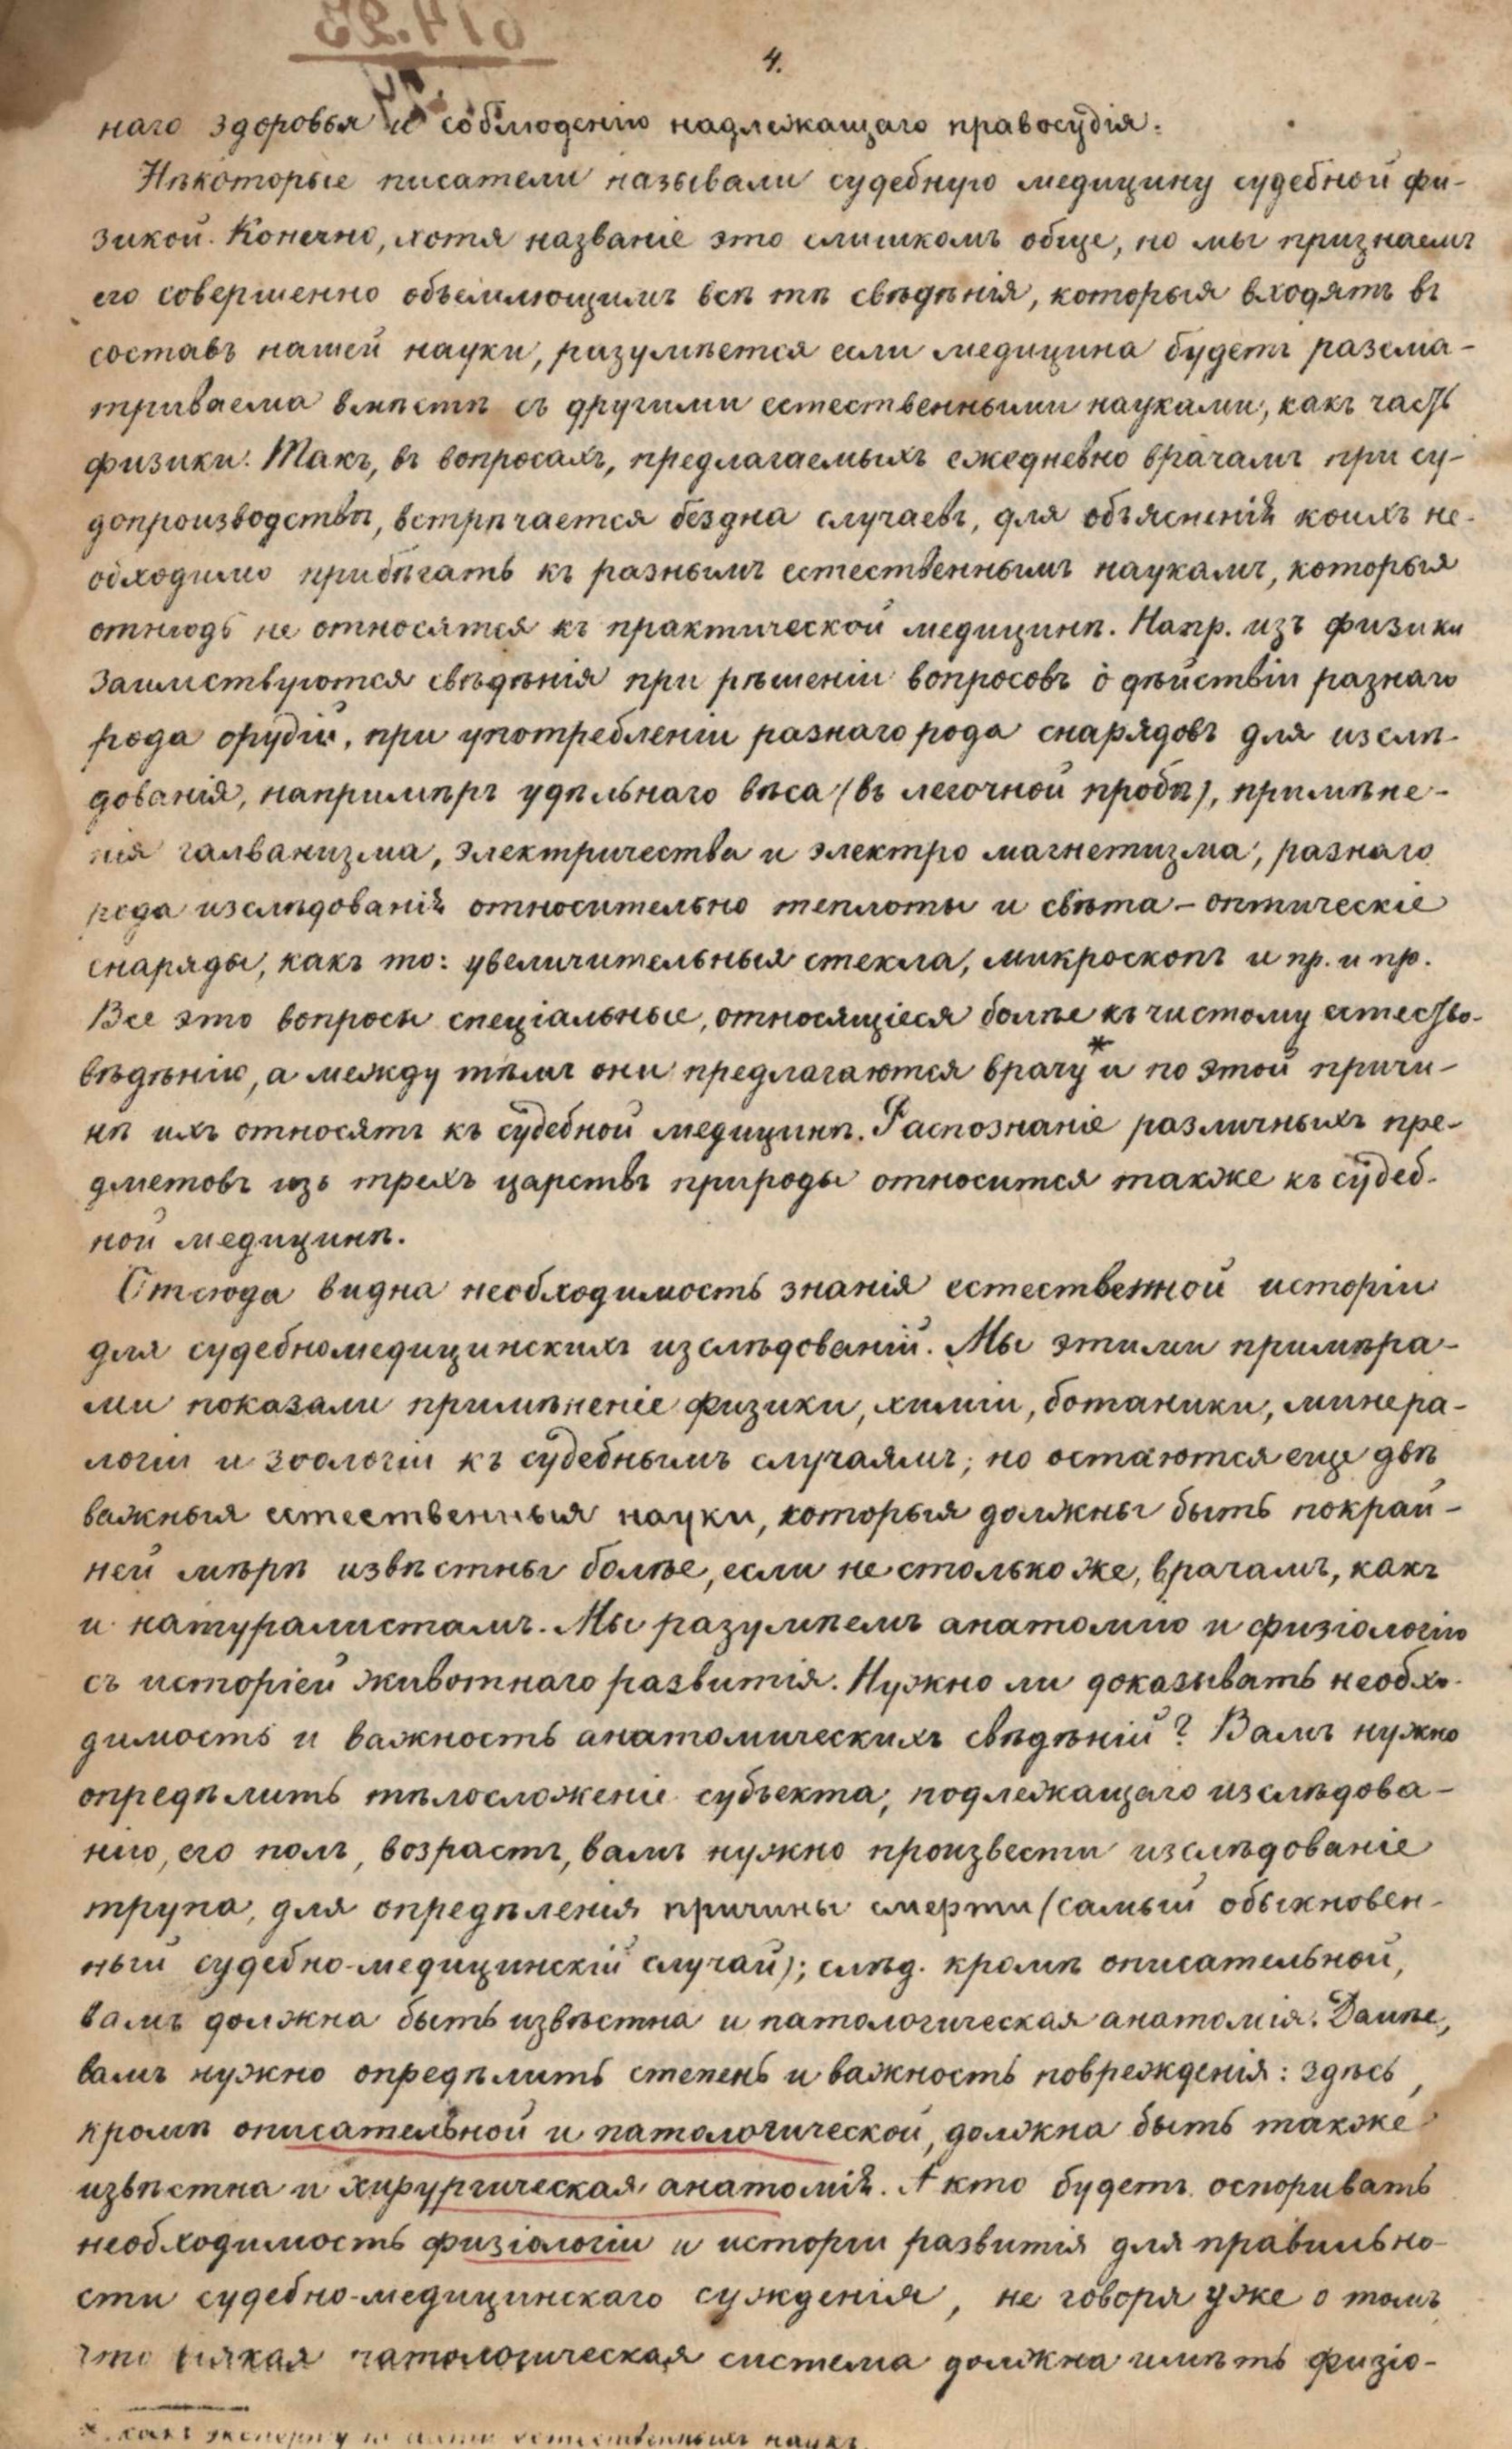 4.
наго здоровья и соблюденію надлежащаго правосудія.
Нѣкоторые писатели называли судебную медицину судебной фи-
зикой. Конечно, хотя названіе это слишкомъ обще, но мы признаемъ
его совершенно объемлющимъ всѣ тѣ свѣдѣнія, которыя входятъ въ
составъ нашей науки, разумѣется если медицина будетъ разсма-
триваема вмѣстѣ съ другими естественными науками, какъ часть
физики. Такъ, въ вопросахъ, предлагаемыхъ ежедневно врачамъ при су-
допроизводствѣ, встрѣчается бездна случаевъ, для объясненія коихъ не-
обходимо прибѣгать къ разнымъ естественнымъ наукамъ, которыя
отнюдь не относятся къ практической медицинѣ. Напр. изъ физики
заимствуются свѣдѣнія при рѣшеніи вопросовъ о дѣйствіи разнаго
рода орудій, при употребленіи разнаго рода снарядовъ для изслѣ-
дованія, напримѣръ удѣльнаго вѣса (въ легочной пробѣ), примѣне-
нія галванизма, электричества и электро магнетизма, разнаго
рода изслѣдованій относительно теплоты и свѣта - оптическіе
снаряды, какъ то: увеличительныя стекла, микроскопъ и пр. и пр.
Все это вопросы спеціальные, относящіеся болѣе къ чистому естество-
вѣдѣнію, а между тѣмъ они предлагаются врачу* и по этой причи-
нѣ ихъ относятъ къ судебной медицинѣ. Распознаніе различныхъ пре-
дметовъ изъ трехъ царствъ природы относится также къ судеб-
ной медицинѣ.
Отсюда видна необходимость знанія естественной исторіи
для судебномедицинскихъ изслѣдованій. Мы этими примѣра-
ми показали примѣненіе физики, химіи, ботаники, минера-
логіи и зоологіи къ судебнымъ случаямъ; но остаются еще двѣ
важныя естественныя науки, которыя должны быть покрай-
ней мѣрѣ извѣстны болѣе, если не столько же, врачамъ, какъ
и натуралистамъ. Мы разумѣемъ анатомію и физіологію
съ исторіей животнаго развитія. Нужно ли доказывать необхо-
димость и важность анатомическихъ свѣдѣній? Вамъ нужно
опредѣлить тѣлосложеніе субъекта, подлежащаго изслѣдова-
нію, его полъ, возрастъ, вамъ нужно произвести изслѣдованіе
трупа, для опредѣленія причины смерти (самый обыкновен-
ный судебно-медицинскій случай); слѣд. кромѣ описательной,
вамъ должна быть извѣстна и патологическая анатомія. Далѣе,
вамъ нужно опредѣлить степень и важность поврежденія: здѣсь,
кромѣ описательной и патологической, должна быть также
извѣстна и хирургическая анатомія. А кто будетъ оспоривать
необходимость физіологіи и исторіи развитія для правильно-
сти судебно-медицинскаго сужденія, не говоря уже о томъ
что всякая патологическая система должна имѣть физіо-
*. какъ эксперту по части естественныхъ наукъ.